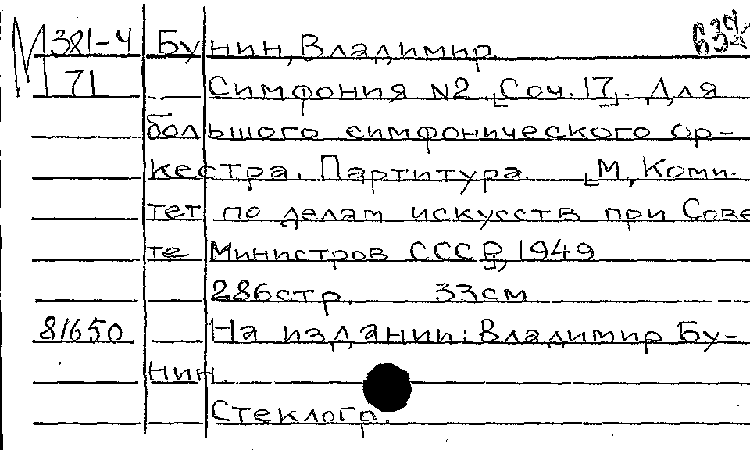 М 381-4 Бунин, Владимир
71 Симфония №2 [Соч. 17]. Для
большого симфонического ор-
кестра. Партитура [М, Коми-
тет по делам искусств при Сове
те Министров СССР], 1949
286стр. 33см
81650 На издании: Владимир Бу-
нин.
Стеклогр.